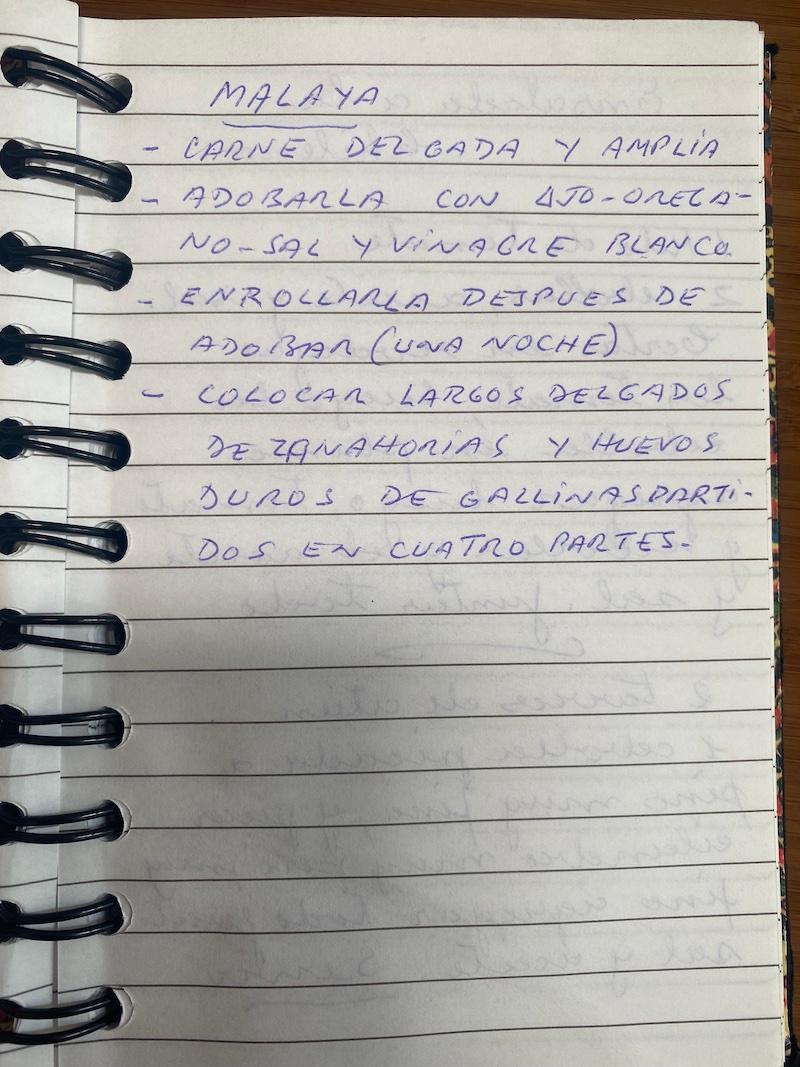 MALAYA
- CARNE DELGADA Y AMPLIA
- ADOBARLA CON AJO-OREGA-
NO-SAL Y VINAGRE BLANCO.
- ENROLLARLA DESPUES DE
ADOBAR (UNA NOCHE)
- COLOCAR LARGOS DELGADOS
DE ZANAHORIAS Y HUEVOS
DUROS DE GALLINAS PARTI-
DOS EN CUATRO PARTES-